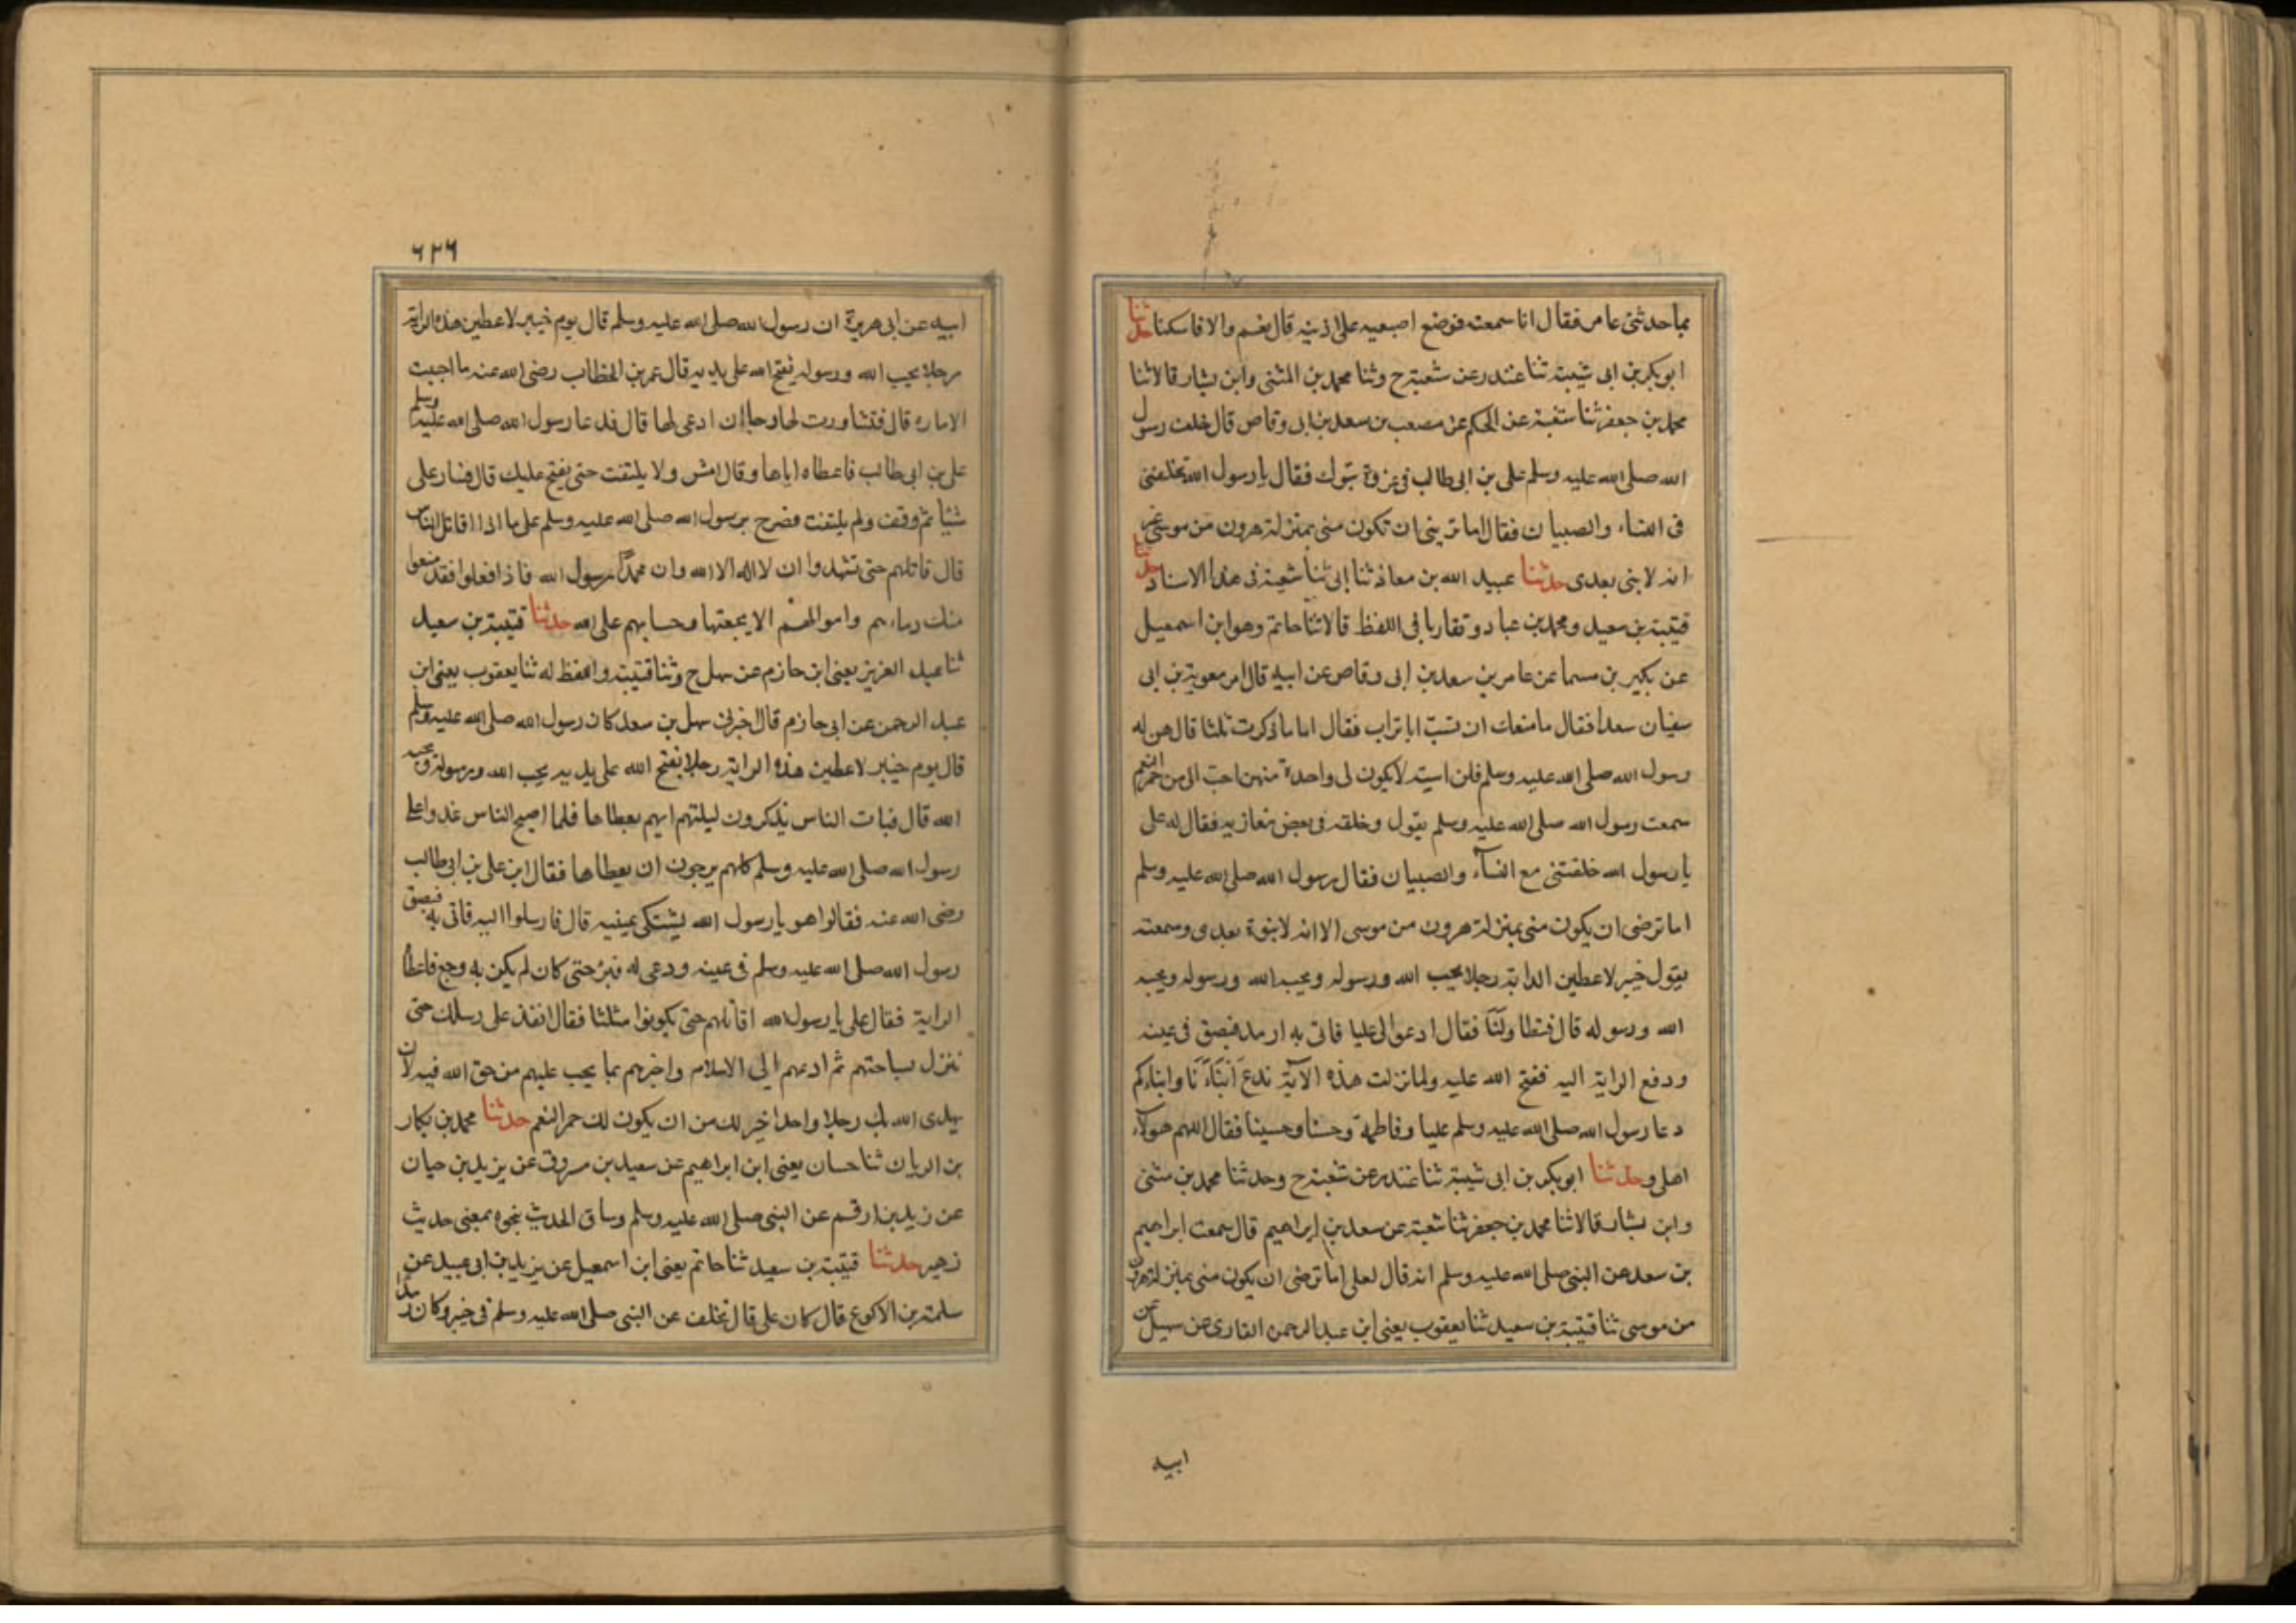 بما حدثنى عامر فقال انا سمعته فوضع اصبعيه على اذنيه قال نعم والا فاسكتا حدثنا
ابو بكر بن ابى شيبة ثنا غندر عن شعبة ح وثنا محمد بن المثنى وابن بشار قالا ثنا
محمد بن جعفر ثنا شعبة عن الحكم عن مصعب بن سعد بن ابى وقاص قال خلف رسول
الله صلى الله عليه وسلم على بن ابى طالب فى غزوة تبوك فقال يا رسول الله تخلفنى
فى النساء والصبيان فقال اما ترضى ان تكون منى بمنزلة هرون من موسى غير
انه لا نبى بعدى حدثنا عبيد الله بن معاذ ثنا ابى ثنا شعبة فى هذا الاسناد حدثنا
قتيبة بن سعيد ومحمد بن عباد وتقاربا فى اللفظ قالا ثنا حاتم وهو ابن اسمعيل
عن بكير بن مسما عن عامر بن سعد بن ابى وقاص عن ابيه قال امر معوية بن ابى
سفيان سعدا فقال ما منعك ان تسب ابا تراب فقال اما ما ذكرت ثلثا قال هن له
رسول الله صلى الله عليه وسلم فلن اسبه لا يكون لى واحدة منهن احب الى من حمر النعم
سمعت رسول الله صلى الله عليه وسلم يقول وخلفه فى بعض مغازيه فقال له على
يا رسول الله خلفتنى مع النسآء والصبيان فقال رسول الله صلى الله عليه وسلم
اما ترضى ان يكون منى بمنزلة هرون من موسى الا انه لا نبوة بعدى وسمعته
يقول خيبر لاعطين الراية رجلا يحب الله ورسوله ويحب الله ورسوله ويحبه
الله ورسوله قال فتطاولنا فقال ادعوا لى عليا فاتى به ارمد فبصق فى عينه
ودفع الراية اليه ففتح الله عليه ولما نزلت هذه الآية ندع ابنآءنا وابناءكم
دعا رسول الله صلى الله عليه وسلم عليا وفاطمة وحسنا وحسينا فقال اللهم هولآء
اهلى وحدثنا ابو بكر بن ابى شيبة ثنا غندر عن شعبة ح وحدثنا محمد بن مثنى
وابن بشار قالا ثنا محمد بن جعفر ثنا شعبة عن سعد بن ابراهيم قال سمعت ابراهيم
بن سعد عن النبى صلى الله عليه وسلم انه قال لعلى اما ترضى ان يكون منى بمنزلة هرون
من موسى ثنا قتيبة بن سعيد ثنا يعقوب يعنى ابن عبد الرحمن القارى عن سهيل عن
ابيه
٦٢٦
ابيه عن ابى هريرة ان رسول الله صلى الله عليه وسلم قال يوم خيبر لاعطين هذه الراية
رجلا يحب الله ورسوله يفتح الله على يديه قال عمر بن الخطاب رضى الله عنه ما احببت
الاماره قال فتشاورت لها رجا ان ادعى لها قال فدعا رسول الله صلى الله عليه وسلم
على بن ابى طالب فاعطاه اياها وقال امش ولا يلتفت حتى يفتح عليك قال فسار على
شيئا ثم وقف ولم يلتفت فصرخ يرسول الله صلى الله عليه وسلم على ما اذا اقاتل الناس
قال قاتلهم حتى تشهدوا ان لا اله الا الله وان محمدا رسول الله فاذا فعلوا فقد منعوا
منك دماءهم واموالهم الا بحقها وحسابهم على الله حدثنا قتيبة بن سعيد
ثنا عبد العزيز يعنى ابن حازم عن سهل ح وثنا قتيبة واللفظ له ثنا يعقوب يعنى ابن
عبد الرحمن عن ابى حازم قال اخبرنى سهل بن سعد كان رسول الله صلى الله عليه وسلم
قال يوم خيبر لاعطين هذه الراية رجلا يفتح الله على يديه يحب الله ورسوله ويحبه
الله قال فبات الناس يذكرون ليلتهم ايهم يعطاها فلما اصبح الناس غدوا على
رسول الله صلى الله عليه وسلم كلهم يرجون ان يعطاها فقال اين على بن ابى طالب
رضى الله عنه فقالوا هو يا رسول الله يشتكى عينيه قال فارسلوا اليه فاتى به فبصق
رسول الله صلى الله عليه وسلم فى عينه ودعى له فبرئ حتى كان لم يكن به وجع فاعطاه
الراية فقال على يا رسول الله اقاتلهم حتى يكونوا مثلنا فقال انفذ على رسلك حتى
تنزل بساحتهم ثم ادعهم الى الاسلام واخبرهم بما يجب عليهم من حق الله فيه لان
يهدى الله بك رجلا واحدا خير لك من ان يكون لك حمر النعم حدثنا محمد بن بكار
بن الريان ثنا حسان يعنى ابن ابراهيم عن سعيد بن مسروق عن يزيد بن حيان
عن زيد بن ارقم عن النبى صلى الله عليه وسلم وساق الحديث بنحوه بمعنى حديث
زهير حدثنا قتيبة بن سعيد ثنا حاتم يعنى ابن اسمعيل عن يزيد بن ابى عبيد عن
سلمة بن الاكوع قال كان على قال تخلف عن النبى صلى الله عليه وسلم فى خيبر وكان